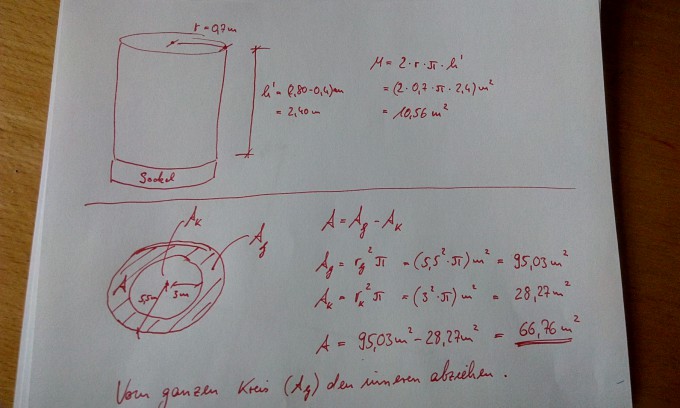 r = 0,7m
h' = (2,80-0,4)m
= 2,40m
M = 2·r·π·h'
= (2·0,7·π·2,4)m²
= 10,56 m²
Sockel
A_K
A_g
A
5,5m
3m
A = A_g - A_K
A_g = r_g² π = (5,5²·π)m² = 95,03m²
A_K = r_K² π = (3²·π)m² = 28,27m²
A = 95,03m² - 28,27m² = 66,76 m²
Vom ganzen Kreis (A_g) den inneren abziehen.